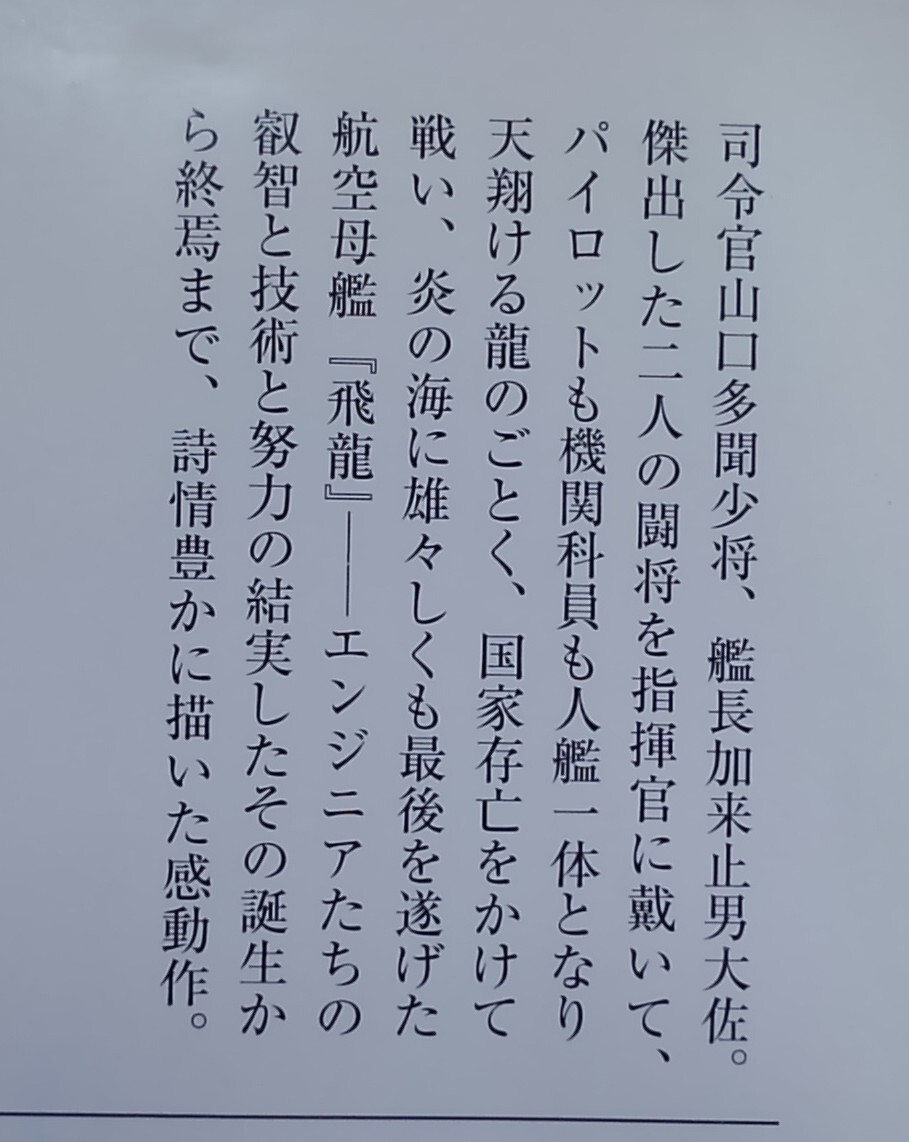 司令官山口多聞少将、艦長加来止男大佐。
傑出した二人の闘将を指揮官に戴いて、
パイロットも機関科員も人艦一体となり
天翔ける龍のごとく、国家存亡をかけて
戦い、炎の海に雄々しくも最後を遂げた
航空母艦『飛龍』――エンジニアたちの
叡智と技術と努力の結実したその誕生か
ら終焉まで、詩情豊かに描いた感動作。